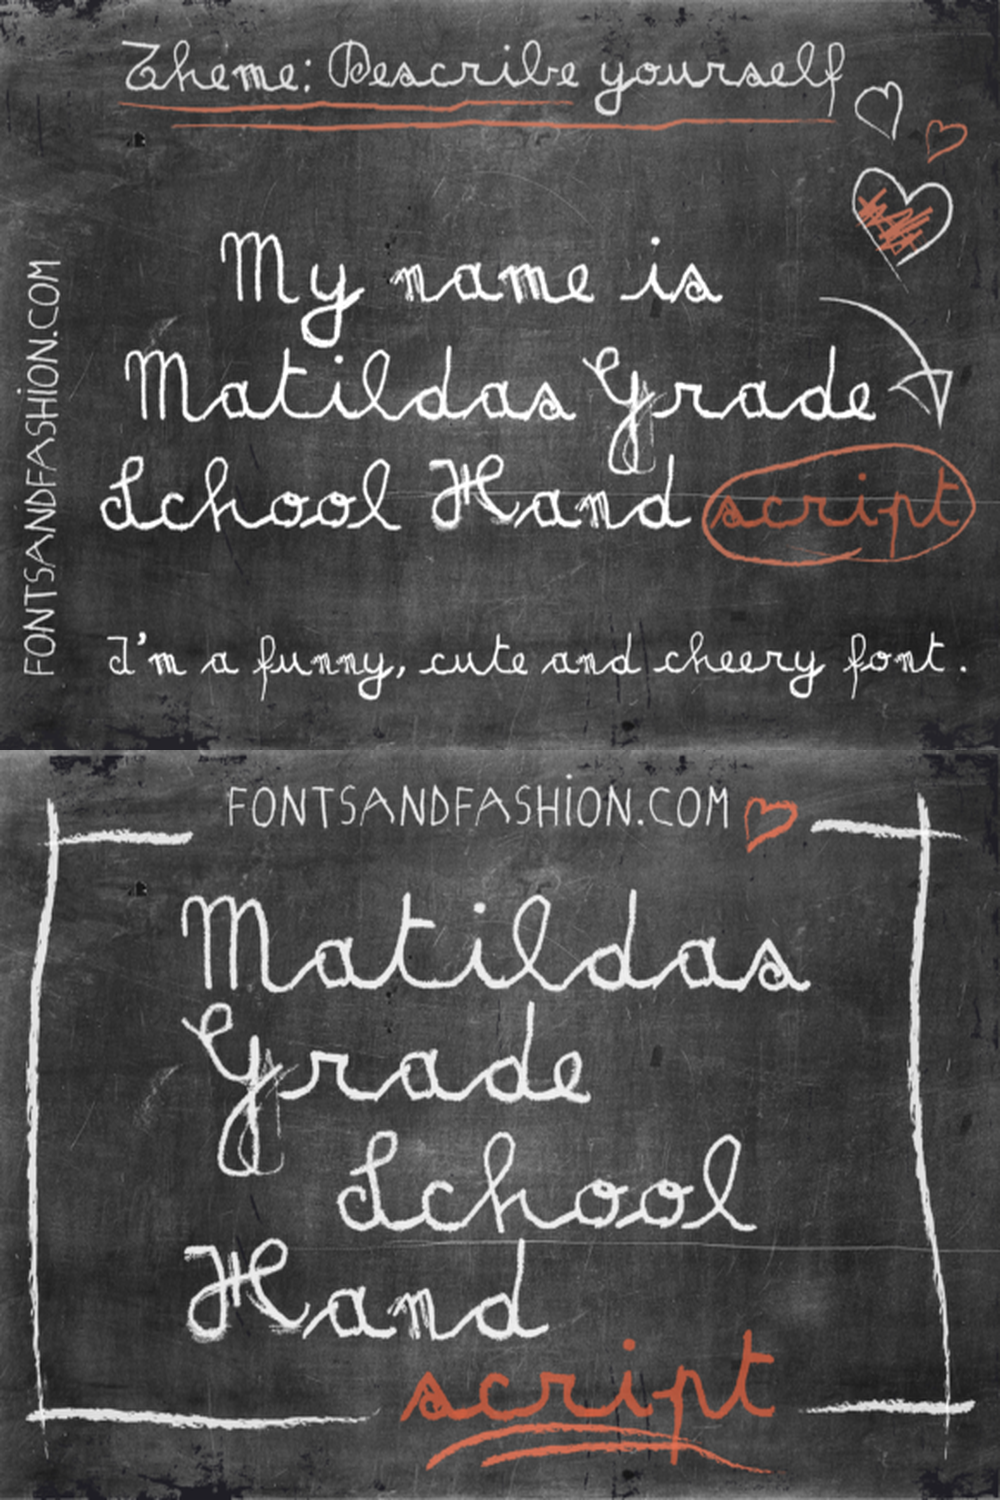 Theme: Describe yourself
FONTSANDFASHiON.COM
My name is
Matildas Grade
School Hand script
I'm a funny, cute and cheery font.
FONTSANDFASHiON.COM
Matildas
Grade
School
Hand
script